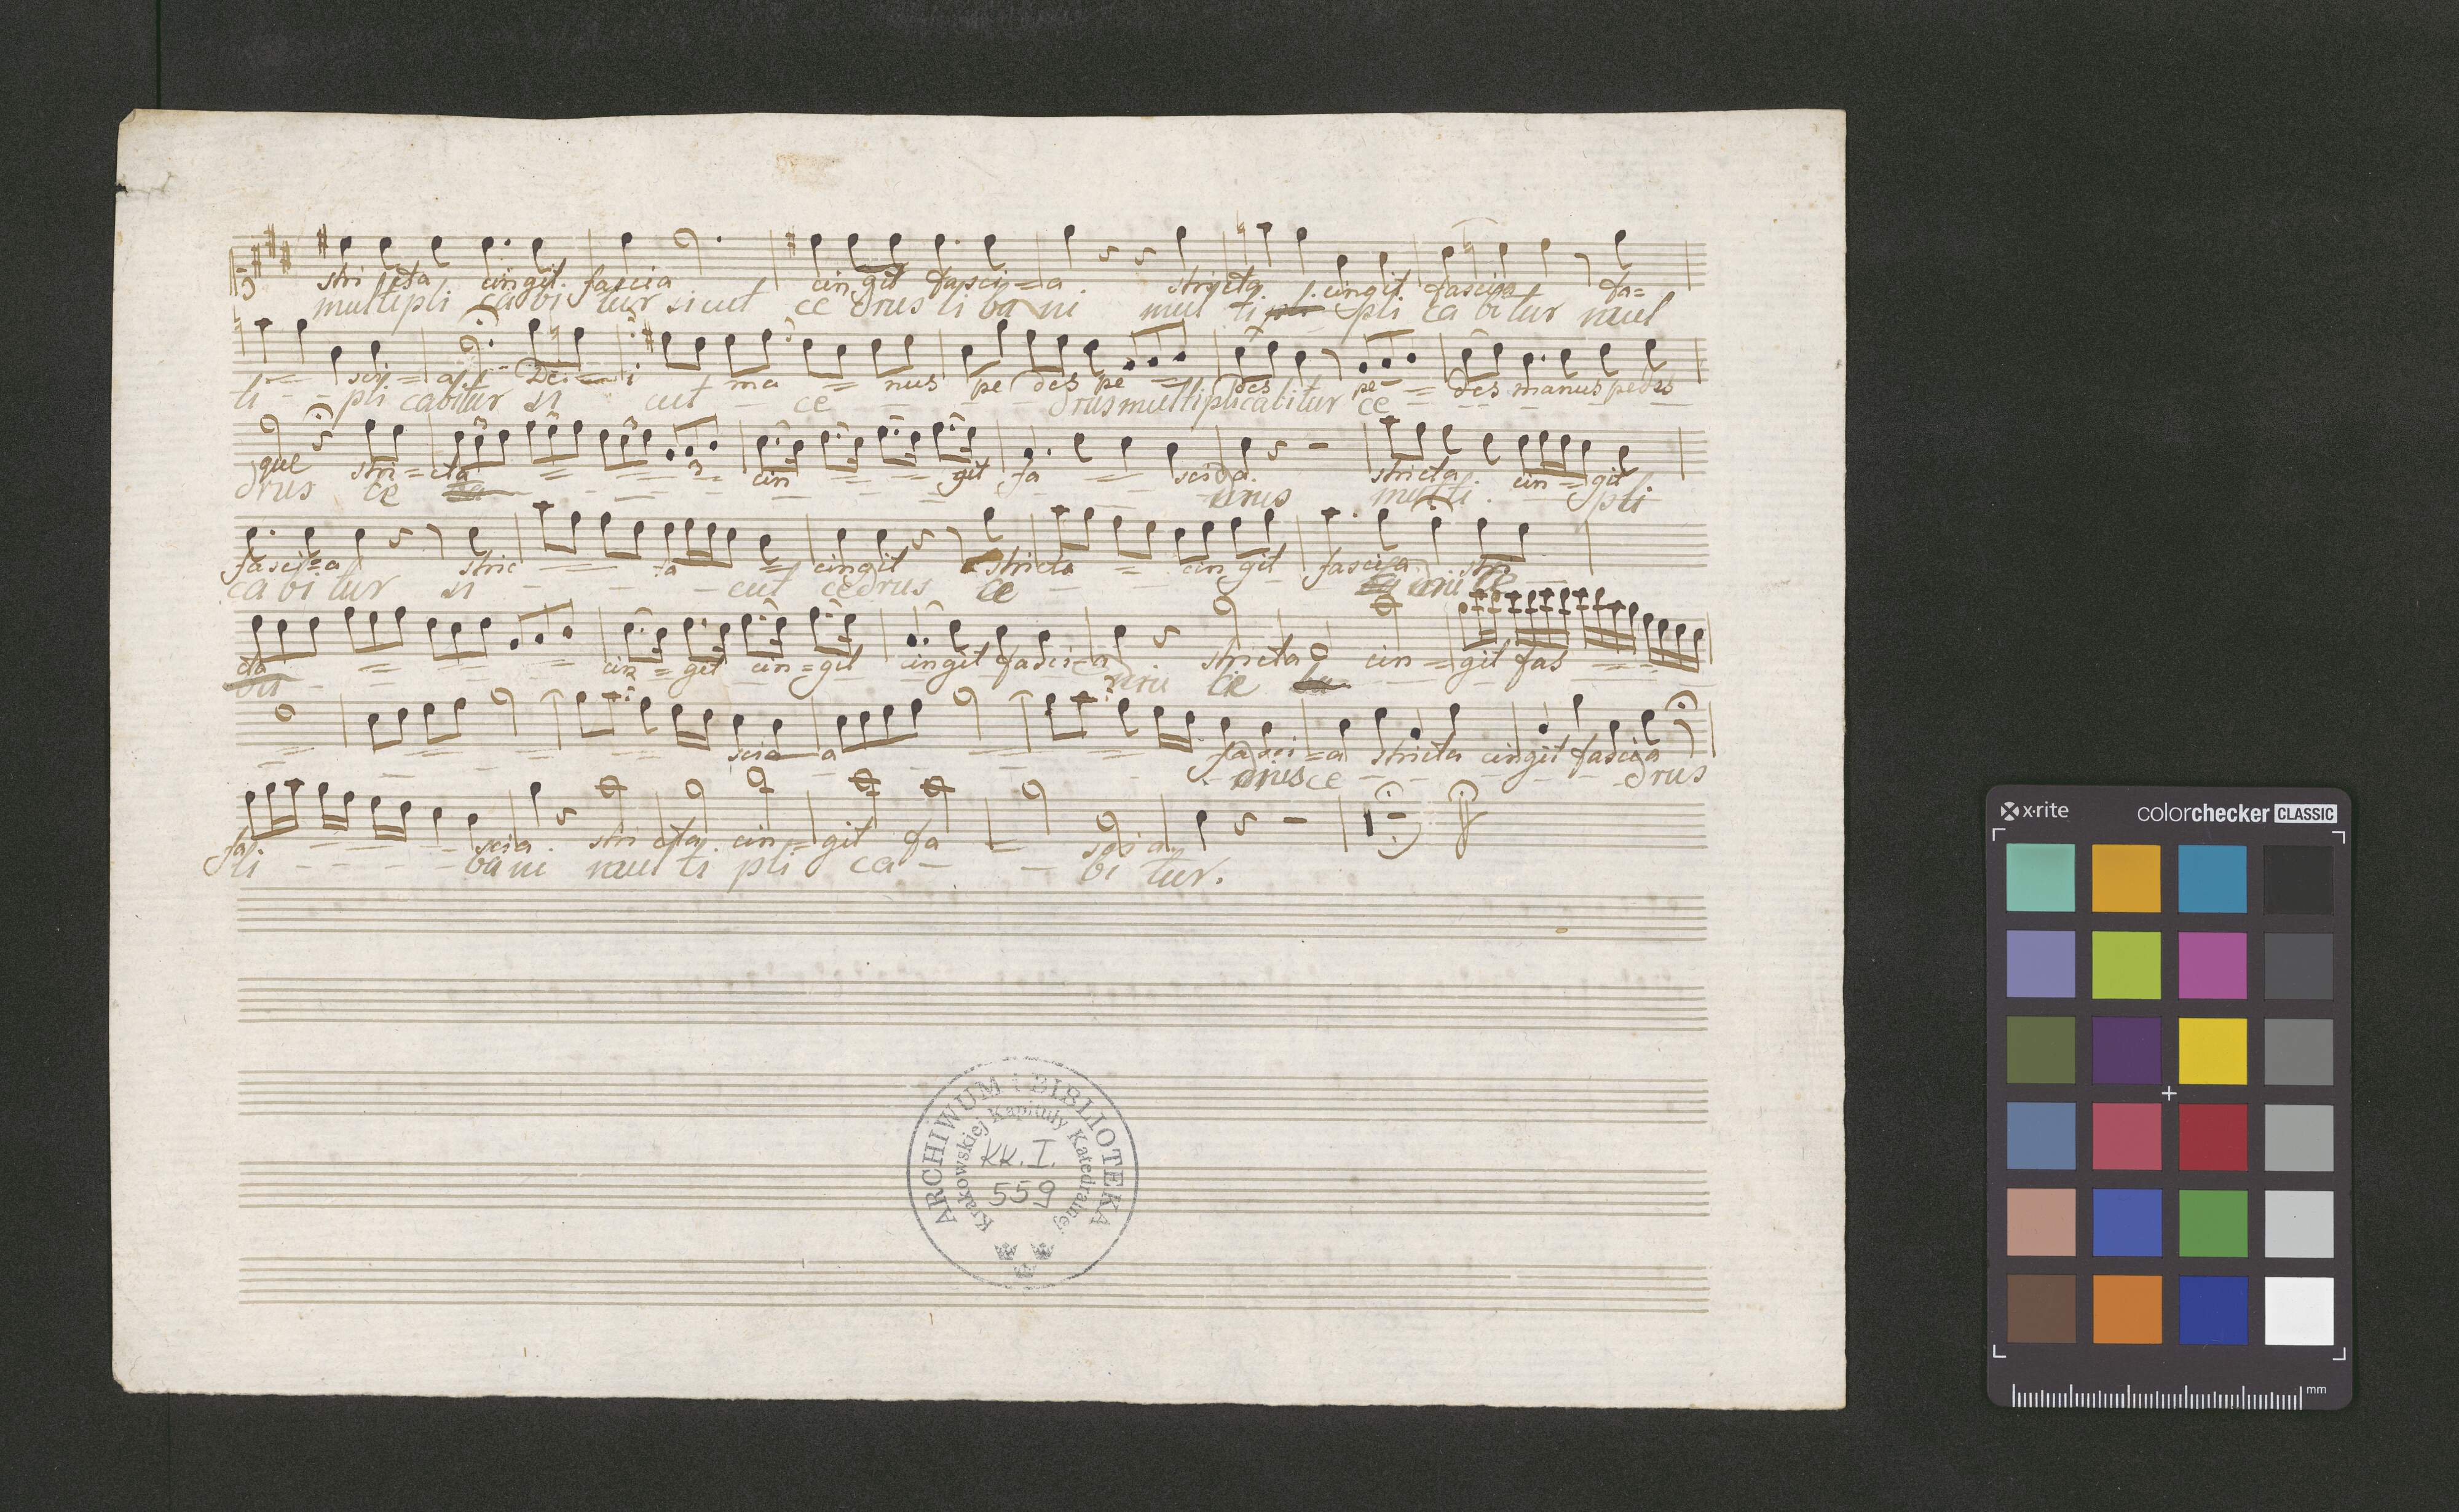 stri cta cingit fascia cingit fasci=a. stricta cingit fascia fa=
multipli cabi tur sicut ce drus li ba ni mul ti pli ca bitur mul
sci = a Dei = i ma = nus pe des pe = des pe = des manus pedes
ti - - pli cabitur si cut ce - - drus multiplicabitur ce
que stri=cta = = = cin = = = git fa = = scia stricta cin = git
drus ce - - - - drus multi. pli
fasci=a stric = = ta = cingit stricta = cin git fascia stri
ca bi tur si - - - - cut cedrus ce - - - ce
cta = = = cin = git cin=git cingit fasci=a. stricta cin = git fas = =
ce
= = = = scia a = = fasci=a stricta cingit fascia
drus ce - - - - drus
fa. = = = scia. stri cta. cin=git fa = scia.
li - - - - ba ni mul ti pli ca - - bi tur.
ARCHIWUM i BIBLIOTEKA
Krakowskiej Kapituły Katedralnej
KK. I.
559
x·rite colorchecker CLASSIC
mm